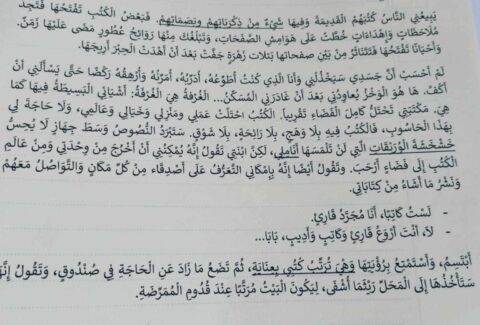 يَبيعُني النّاسُ كُتُبَهُمُ القَديمَةَ وَفيها شَيْءٌ مِنْ ذِكْرَياتِهِمْ وَبَصَماتِهِمْ. فَبَعْضُ الكُتُبِ تَفْتَحُها فَتَجِدُ
مُلاحَظاتٍ وَإِهْداءاتٍ خُطَّتْ عَلى هَوامِشِ الصَّفَحاتِ، وَتَبْلُغُكَ مِنْها رَوائِحُ عُطورٍ مَضى عَلَيْها زَمَنٌ.
وَأَحْيانًا تَفْتَحُها فَتَتَناثَرُ مِنْ بَيْنِ صَفَحاتِها بَتَلاتُ زَهْرَةٍ جَفَّتْ بَعْدَ أَنْ أَهْدَتْ الحِبْرَ أَريجَها.
لَمْ أَحْسَبْ أَنَّ جَسَدي سَيَخْذُلُني وَأَنا الَّذي كُنْتُ أُطَوِّعُهُ، أُدَرِّبُهُ، أُمَرِّنُهُ وَأُرْهِقُهُ رَكْضًا حَتّى يَسْأَلَني أَنْ
أَكُفَّ. ها هُوَ الوَخْزُ يُعاوِدُني بَعْدَ أَنْ غادَرَني المُسَكِّنُ... الغُرْفَةُ هِيَ الغُرْفَةُ: أَشْيائي البَسيطَةُ فيها كَما
هِيَ. مَكْتَبَتي تَحْتَلُّ كامِلَ الفَضاءِ تَقْريباً. الكُتُبُ احْتَلَّتْ عَمَلي وَمَنْزِلي وَخَيالي وَعالَمي، وَلا حاجَةَ لي
بِهَذا الحاسُوبِ، فَالكُتُبُ فيهِ بِلا وَهَجٍ، بِلا رائِحَةٍ، بِلا شَوْقٍ. سَتَبْرُدُ النُّصوصُ وَسَطَ جِهازٍ لا يُحِسُّ
خَشْخَشَةَ الوُرَيْقاتِ الَّتي لَنْ تَلْمَسَها أَنامِلي، لَكِنَّ ابْنَتي تَقولُ إِنَّهُ يُمْكِنُني أَنْ أَخْرُجَ مِنْ وِحْدَتي وَمِنْ عالَمِ
الكُتُبِ إِلى فَضاءٍ أَرْحَبَ. وَتَقولُ أَيْضًا إِنَّهُ بِإِمْكاني التَّعَرُّفُ عَلى أَصْدِقاءَ مِنْ كُلِّ مَكانٍ وَالتَّواصُلُ مَعَهُمْ
وَنَشْرُ ما أَشاءُ مِنْ كِتاباتي.
- لَسْتُ كاتِبًا، أَنا مُجَرَّدُ قارِئٍ.
- لا، أَنْتَ أَرْوَعُ قارِئٍ وَكاتِبٍ وَأَديبٍ، بابا...
أَبْتَسِمُ، وَأَسْتَمْتِعُ بِرُؤْيَتِها وَهْيَ تُرَتِّبُ كُتُبي بِعِنايَةٍ، ثُمَّ تَضَعُ ما زادَ عَنِ الحاجَةِ في صُنْدوقٍ، وَتَقولُ إِنَّها
سَتَأْخُذُها إِلى المَحَلِّ رَيْثَما أُشْفى، لِيَكونَ البَيْتُ مُرَتَّبًا عِنْدَ قُدومِ المُمَرِّضَةِ.